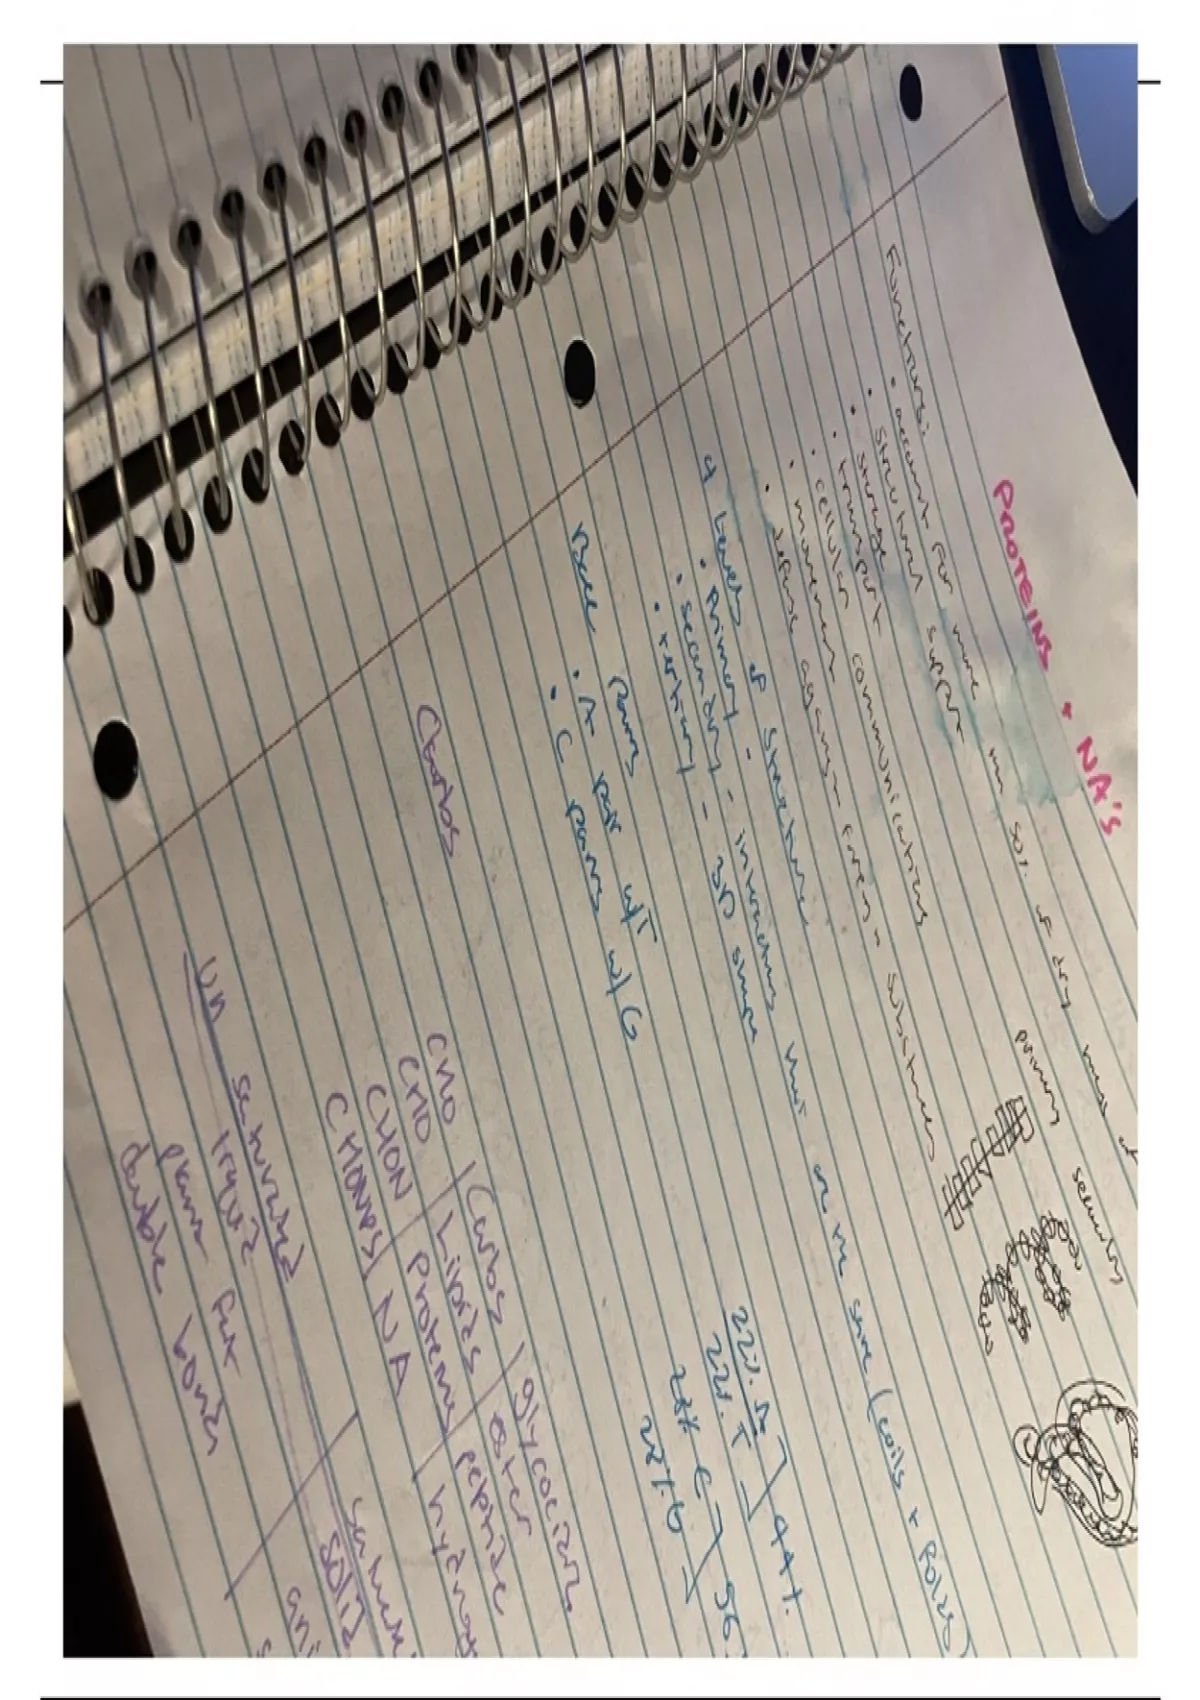 PROTEINS + NA'S
Functions:
• account for more than 50% of dry mass of
• Structural support
• storage
• transport
• cellular communications
• movement
• defense against foreign substances
primary
secondary
4 Levels of Structure
• primary -
• secondary - interactions that are the same (coils + folds)
• tertiary - 3D shape
Base Pairs
• A pair w/T
• C pairs w/G
22% A
22% T
44%
28% C
28% G
56
Carbos
CHO Carbos glycocidic
CHO Lipids ester
CHON Proteins peptide
CHONPS NA hydrog
Un saturated
liquid
plant fat
double bonds
solid